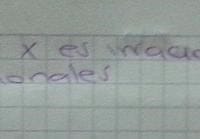 x es irrac
ionales